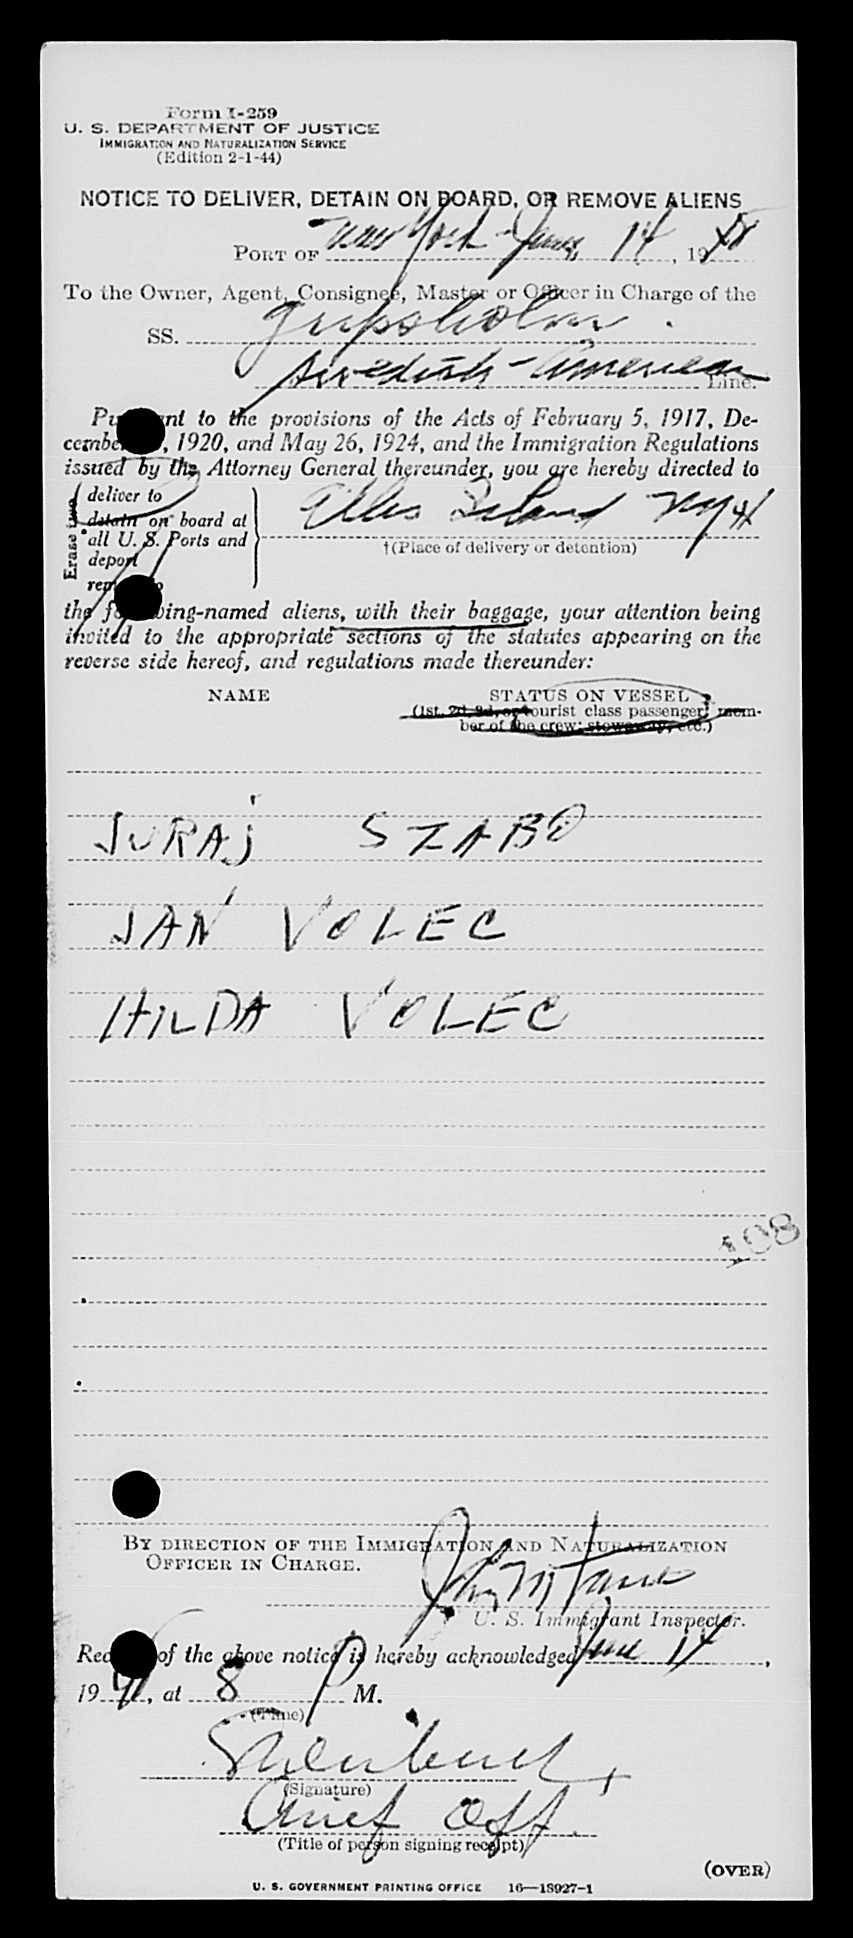 Form I-259
U. S. DEPARTMENT OF JUSTICE
IMMIGRATION AND NATURALIZATION SERVICE
(Edition 2-1-44)
NOTICE TO DELIVER, DETAIN ON BOARD, OR REMOVE ALIENS
PORT OF New York - June 14, 19
To the Owner, Agent, Consignee, Master or Officer in Charge of the
SS. Gripsholm.
Swedish-American Line.
Pursuant to the provisions of the Acts of February 5, 1917, De-
cember 1920, and May 26, 1924, and the Immigration Regulations
issued by the Attorney General thereunder, you are hereby directed to
Erase two
deliver to
detain on board at
all U. S. Ports and
deport
remove to
Ellis Island NY H
†(Place of delivery or detention)
the following-named aliens, with their baggage, your attention being
invited to the appropriate sections of the statutes appearing on the
reverse side hereof, and regulations made thereunder:
NAME STATUS ON VESSEL
(1st, 2d, 3d, or tourist class passenger; mem-
ber of the crew; stowaway, etc.)
JURAJ SZABO
JAN VOLEC
HILDA VOLEC
108
BY DIRECTION OF THE IMMIGRATION AND NATURALIZATION
OFFICER IN CHARGE.
U. S. Immigrant Inspector.
Receipt of the above notice is hereby acknowledged June 14,
19, at 8 P M.
(Time)
(Signature)
Chief Off.
(Title of person signing receipt)
(OVER)
U. S. GOVERNMENT PRINTING OFFICE 16—18927-1